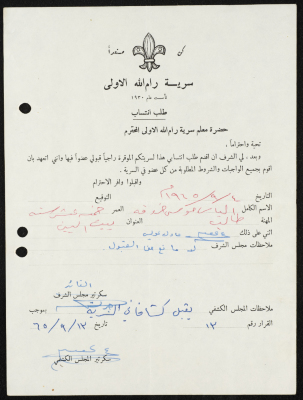 كن مستعداً
سرية رام الله الاولى
تأسست عام ١٩٣٠
طلب انتساب
حضرة معلم سرية رام الله الاولى المحترم
تحية واحتراماً،
وبعد، لي الشرف ان اقدم طلب انتسابي هذا لسريتكم الموقرة راجياً قبولي عضواً فيها وانني اتعهد بان
اقوم بجميع الواجبات والشروط المطلوبة من كل عضو في السرية.
واقبلوا وافر الاحترام
التاريخ
التوقيع
الاسم الكامل الياس العمر خمسة عشر سنة
المهنة طالب العنوان
اثني على ذلك
ملاحظات مجلس الشرف لا مانع من القبول
القائد
سكرتير مجلس الشرف
ملاحظات المجلس الكشفي يقبل كشافاً في السرية بموجب
القرار رقم ١٣ تاريخ ٦٥/٩/١٣
سكرتير المجلس الكشفي